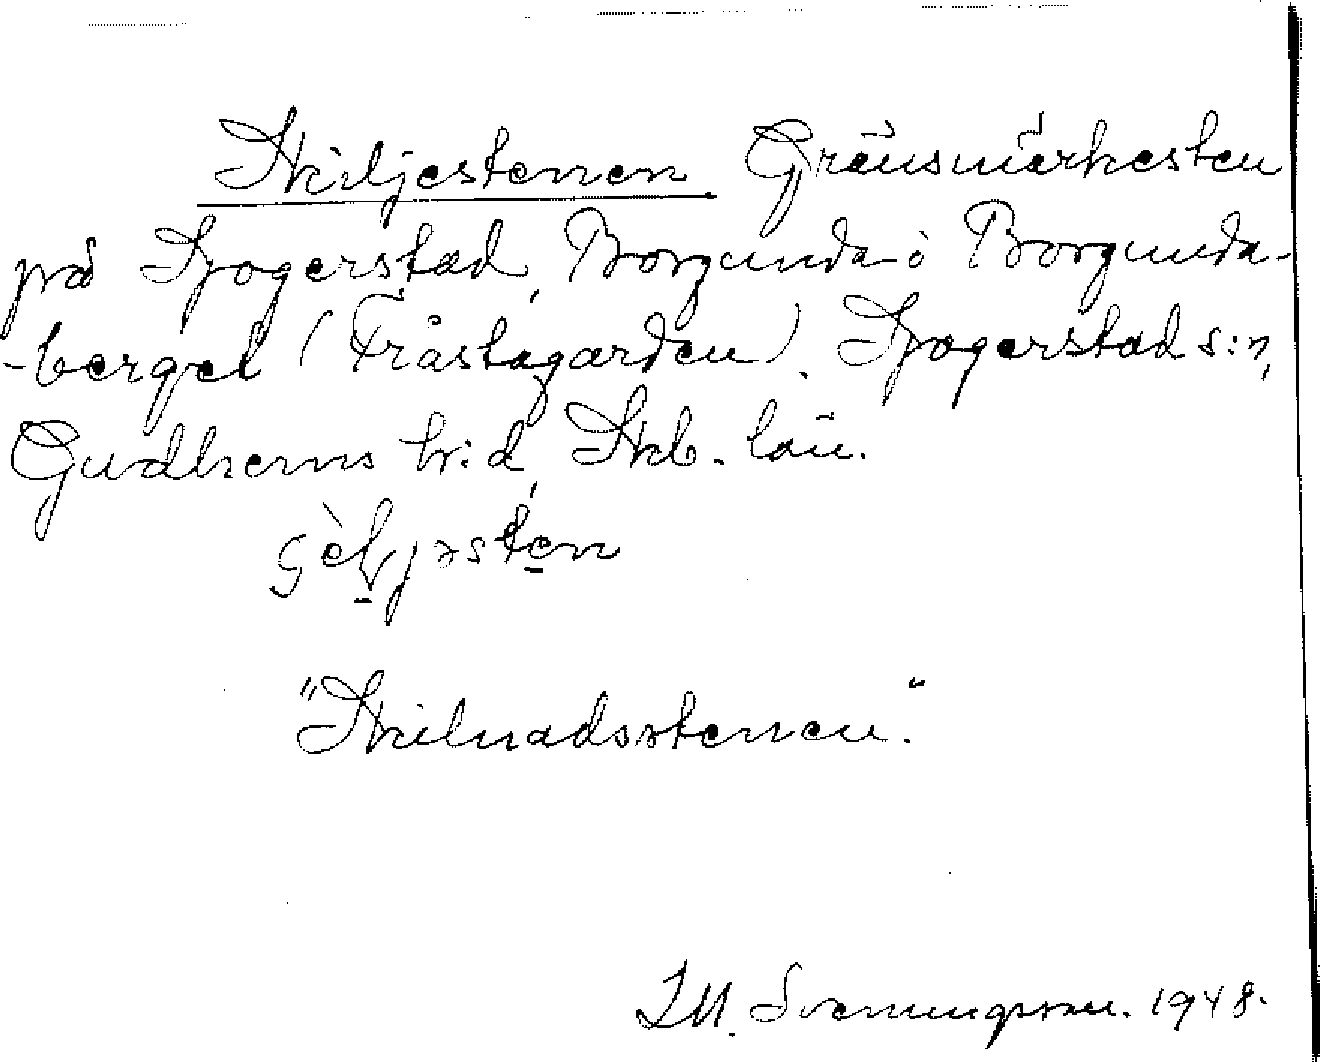 Skiljestenen. Gränsmärkesten
på Sjogerstad, Borgunda o Borgunda-
-berget (Fråstagården). Sjogerstad s:n,
Gudhems h:d, Skb. län.
"Skilnadsstenen."
I M. Svenungsson. 1948.